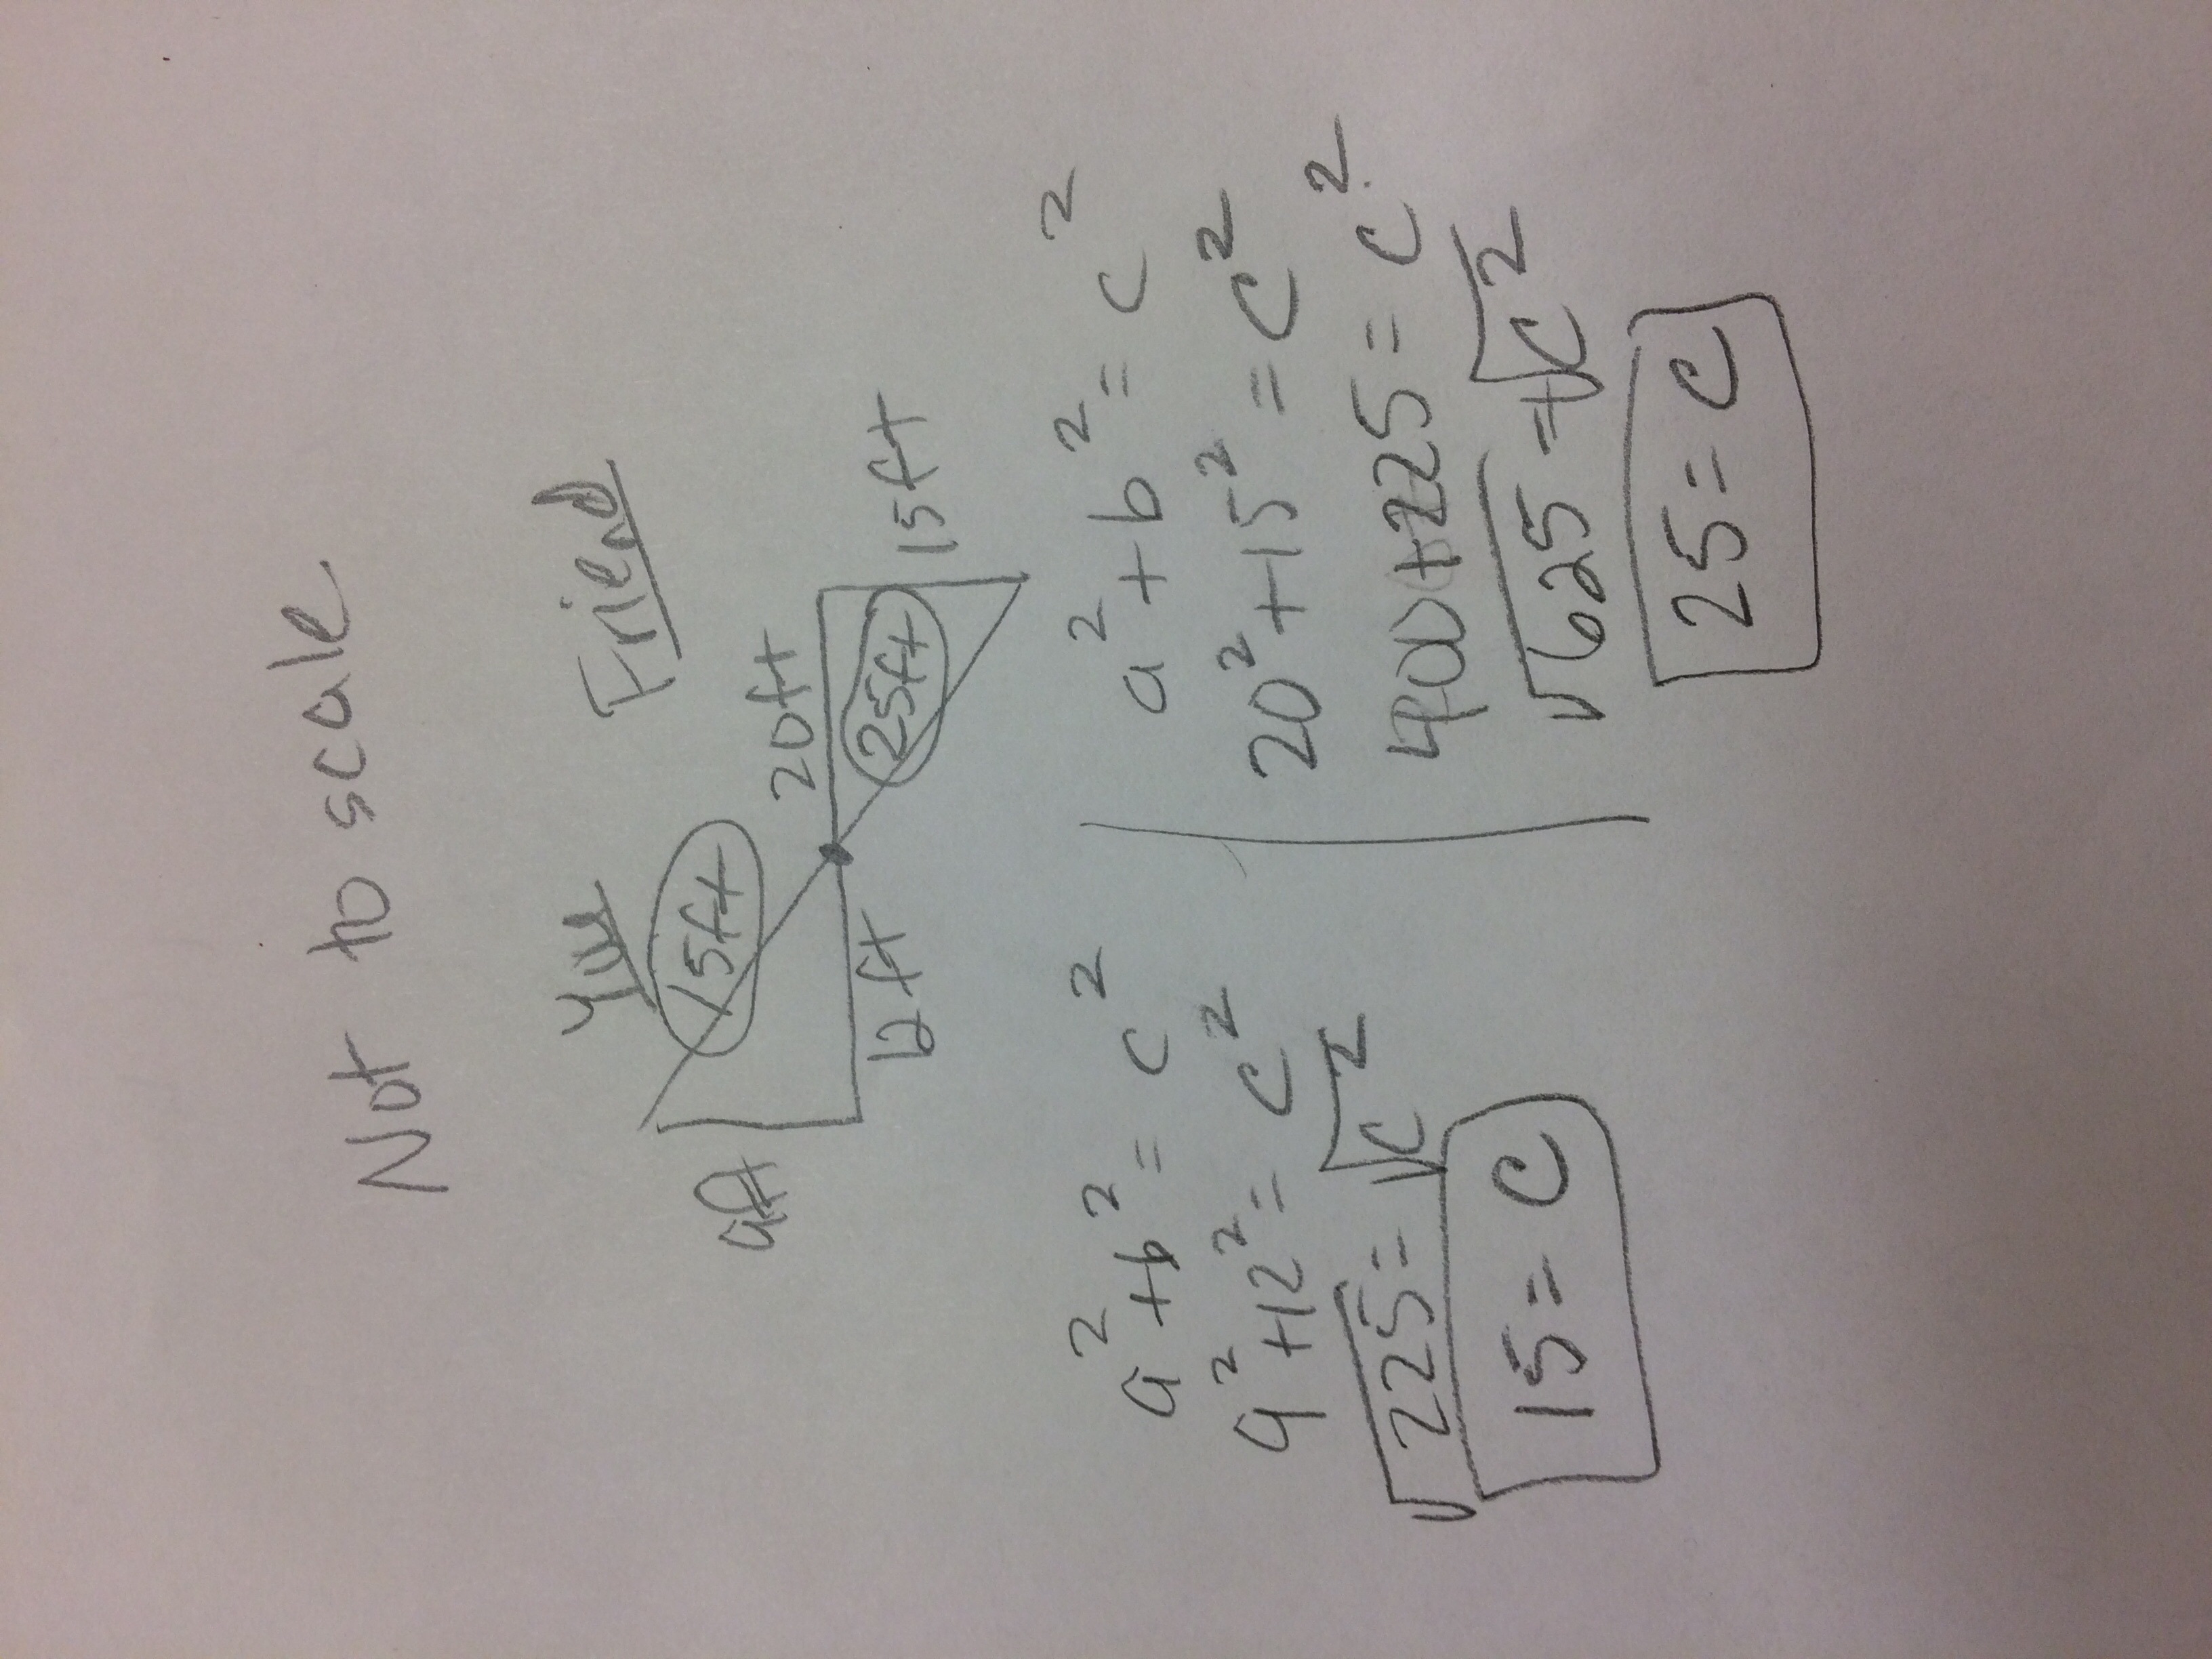 Not to scale
You Friend
15ft 20ft
9ft
12ft 25ft 15ft
a²+b²=c²
9²+12²=c²
√225=√c²
15=c
a²+b²=c²
20²+15²=c²
400+225=c²
√625=√c²
25=c